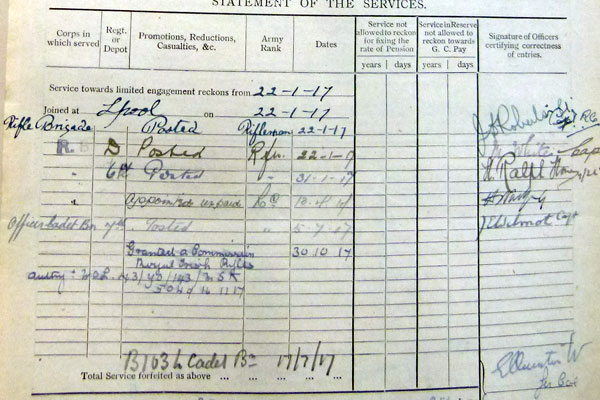 STATEMENT OF THE SERVICES.
Corps in which served
Regt. or Depot
Promotions, Reductions, Casualties, &c.
Army Rank
Dates
Service not allowed to reckon for fixing the rate of Pension
Service in Reserve not allowed to reckon towards G. C. Pay
Signature of Officers certifying correctness of entries.
years days years days
Service towards limited engagement reckons from 22-1-17
Joined at Lpool on 22-1-17
Rifle Brigade Posted Rifleman 22-1-17
R. B D Posted Rfn. 22-1-17 White Capt
" 6th Posted " 31-1-17 H. Ralph
" appointed unpaid
Officer Cadet Bn 7th Posted " 5-7-17 Wilmot Capt
Granted a Commission 30.10.17
Royal Irish Rifles
16 11 17
Cadet Bn 17/7/17
Total Service forfeited as above ... ... ... ...